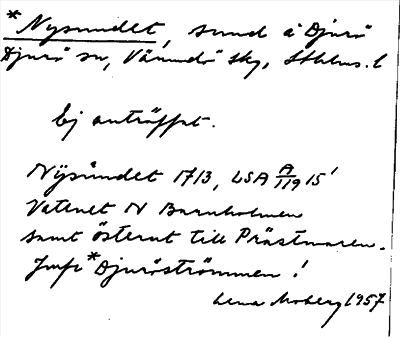 *Nysundet, sund å Djurö
Djurö sn, Värmdö skg, Sthlms. l
Ej anträffat.
Nÿsundet 1713, LSA A/119 15'
Vattnet N Barnholmen
samt österut till Prästmaren.
Jmfr *Djuröströmmen!
Lena Moberg 1957